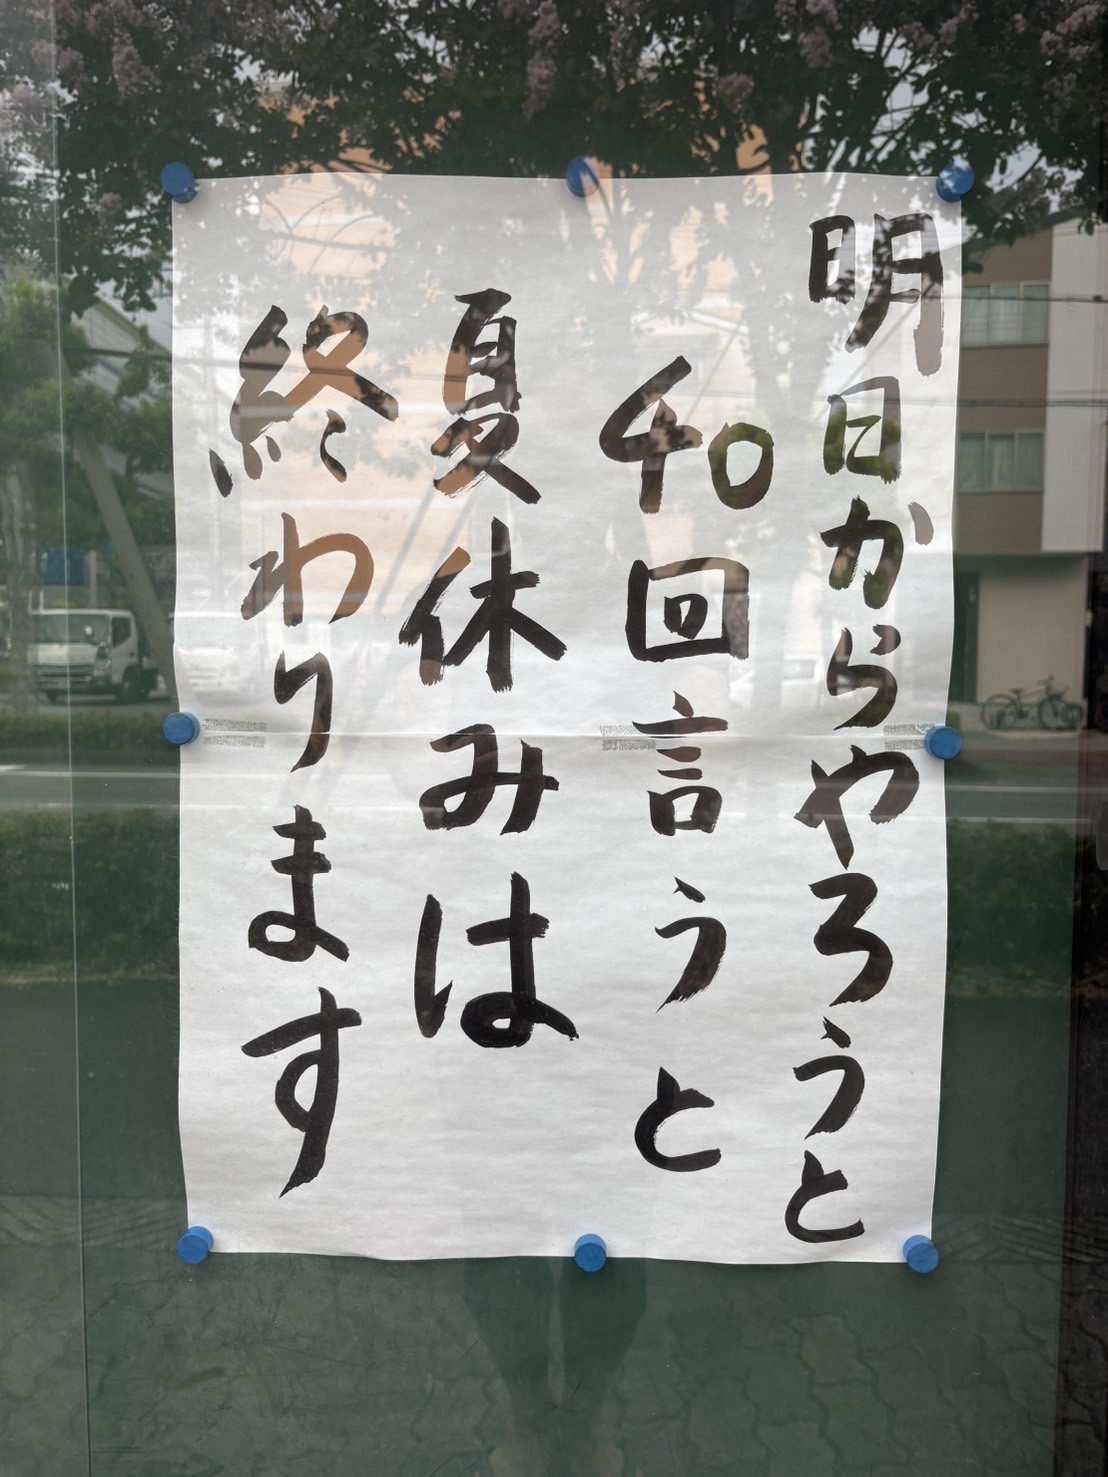 明日からやろうと
40回言うと
夏休みは
終わります